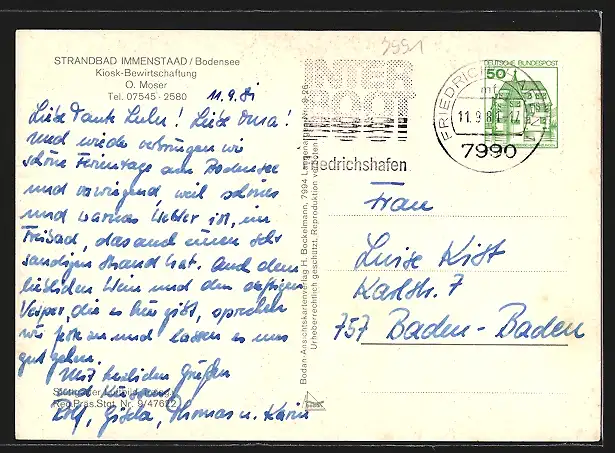 3991
STRANDBAD IMMENSTAAD / Bodensee
Kiosk-Bewirtschaftung
O. Moser
Tel. 07545 - 2580
11.9.81
Liebe Tante Lulu! Liebe Oma!
Und wieder verbringen wir
schöne Ferientage am Bodensee
und vorwiegend, weil schönes
und warmes Wetter ist, im
Freibad, das auch einen sehr
sandigen Strand hat. Auch dem
lieblichen Wein und dem
Vesper, die es hier gibt, sprechen
wir und lassen es uns
gut gehen.
Mit herzlichen Grüßen
und
Rolf, Gisela, Thomas u. Karin
Reg.Präs.Stgt. Nr. 9/47622
Bodan-Ansichtskartenverlag H. Bockelmann, 7994 Langenargen
Urheberrechtlich geschützt. Reproduktion verboten
INTER
BOOT
Friedrichshafen
FRIEDRICH
mf
11.9.81-17
7990
50
DEUTSCHE BUNDESPOST
Frau
Luise Kist
Karlstr. 7
757 Baden-Baden